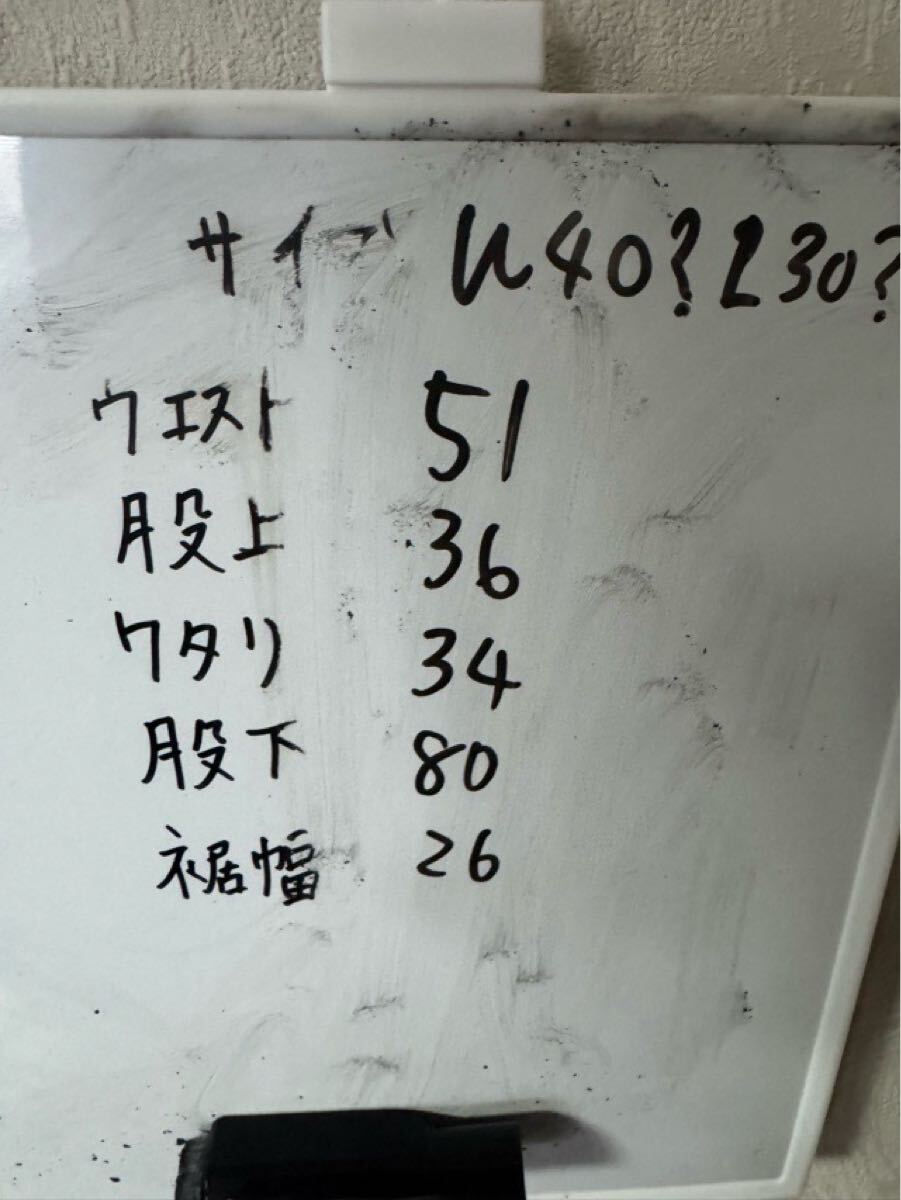 サイズ W40?L30?
ウエスト 51
股上 36
ワタリ 34
股下 80
裾幅 26